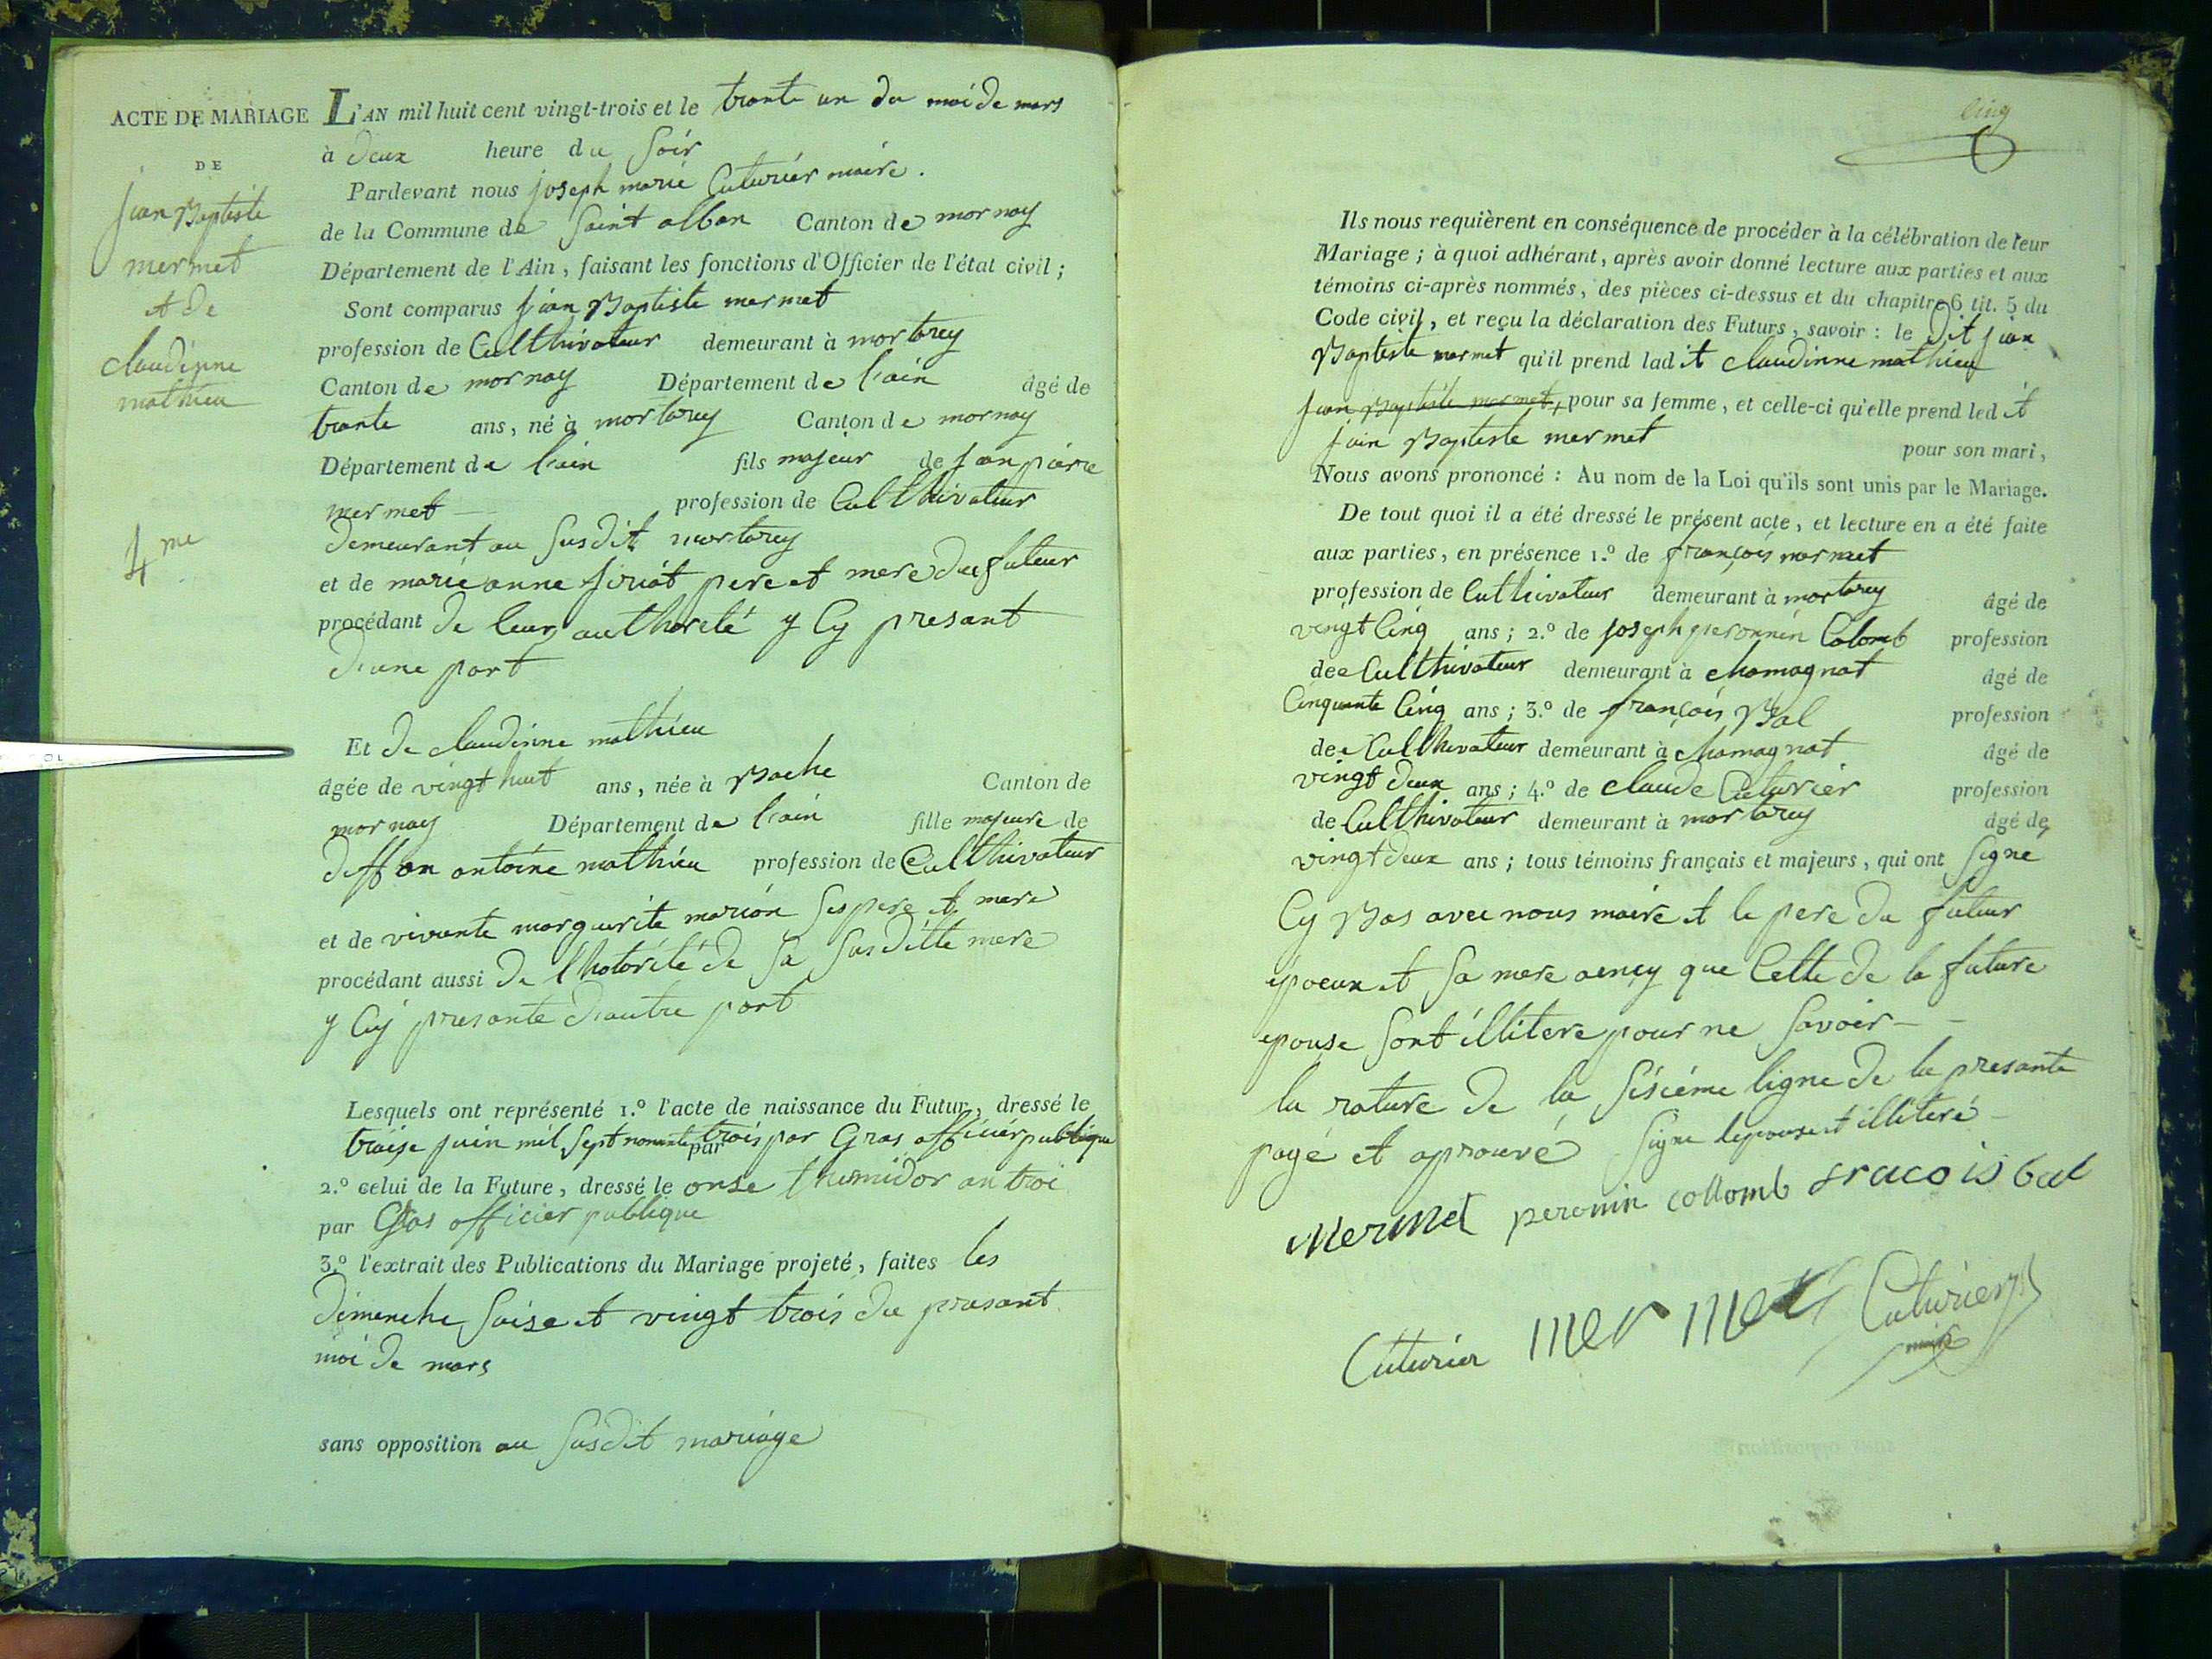 ACTE DE MARIAGE
DE
jean Baptiste
mermet
et de
claudinne
mathieu
4me
L'AN mil huit cent vingt-trois et le trante un du moi de mars
à deux heure du soir
Pardevant nous joseph marie Cuturier maire.
de la Commune de saint alban Canton de mornay
Département de l'Ain, faisant les fonctions d'Officier de l'état civil;
Sont comparus jean Baptiste mermet
profession de Culthivateur demeurant à mortarey
Canton de mornay Département de l'ain âgé de
trante ans, né à mortarey Canton de mornay
Département de l'ain fils majeur de jean piere
mermet profession de Culthivateur
demeurant au susdit mortarey
et de marie anne siriat pere et mere du futeur
procédant de leur authorité y Cy presant
d'une part
Et de claudinne mathieu
âgée de vingt huit ans, née à Bache Canton de
mornay Département de l'ain fille majeure de
deffon antoine mathieu profession de Culthivateur
et de vivante marguerite marion ses pere et mere
procédant aussi de l'hotorité de sa susditte mere
y Cy presante d'autre part
Lesquels ont représenté 1.º l'acte de naissance du Futur, dressé le
traise juin mil sept nonante trois par Gras officier publique
par
2.º celui de la Future, dressé le onse thermidor an troi
par Gras officier publique
3.º l'extrait des Publications du Mariage projeté, faites les
dimenche saise et vingt trois du presant
moi de mars
sans opposition au susdit mariage
Cinq
Ils nous requièrent en conséquence de procéder à la célébration de leur
Mariage; à quoi adhérant, après avoir donné lecture aux parties et aux
témoins ci-après nommés, des pièces ci-dessus et du chapitre 6 tit. 5 du
Code civil, et reçu la déclaration des Futurs, savoir: le dit jean
Baptiste mermet qu'il prend ladit claudinne mathieu
jean Baptiste mermet, pour sa femme, et celle-ci qu'elle prend led it
jean Baptiste mermet pour son mari,
Nous avons prononcé: Au nom de la Loi qu'ils sont unis par le Mariage.
De tout quoi il a été dressé le présent acte, et lecture en a été faite
aux parties, en présence 1.º de françois mermet
profession de Culthivateur demeurant à mortarey âgé de
vingt Cinq ans; 2.º de joseph peronnin Colomb profession
de Culthivateur demeurant à chamagnat âgé de
Cinquante Cinq ans; 3.º de françois Bal profession
de Culthivateur demeurant à chamagnat âgé de
vingt deux ans; 4.º de claude Cuturier profession
de Culthivateur demeurant à mortarey âgé de
vingt deux ans; tous témoins français et majeurs, qui ont signé
Cy Bas avec nous maire et le pere du futeur
epoeux et sa mere aency que Celle de la future
epouse sont illitere pour ne savoir
la rature de la sisiéme ligne de la presante
page et aprouvé signe lepouse et illiteré
Mermet peronin collomb fracois bal
Cuturier mermet Cuturier
maire